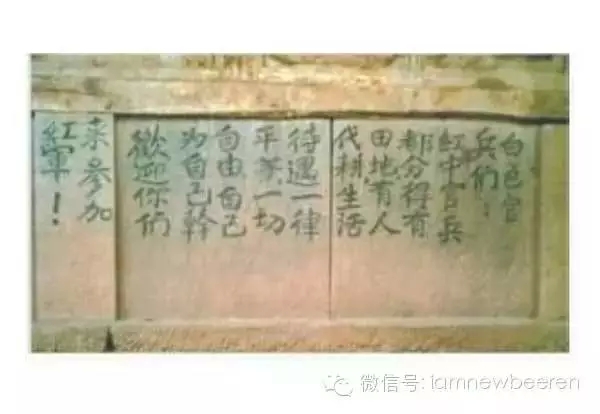 白色官
兵們！
紅中官兵
都分得有
田地有人
代耕生活
待遇一律
平等一切
自由自己
为自己幹
歡迎你們
来參加
紅軍！
微信号: iamnewbeeren